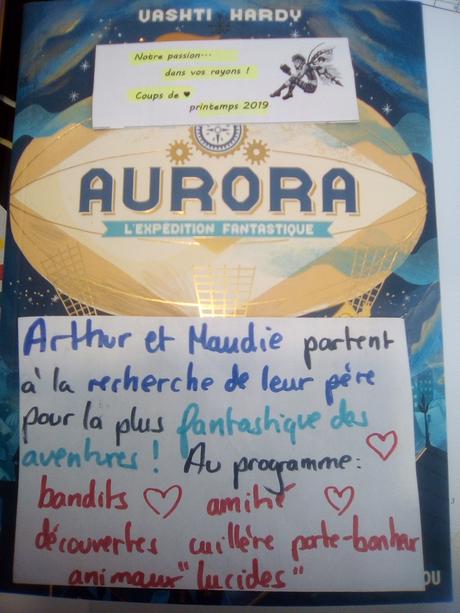 VASHTI HARDY
Notre passion...
dans vos rayons !
Coups de ♥
printemps 2019
AURORA
L'EXPÉDITION FANTASTIQUE
Arthur et Maudie partent
à la recherche de leur père
pour la plus fantastique des
aventures ! Au programme :
bandits ♡ amitié ♡
découvertes cuillère porte-bonheur
animaux "lucides"